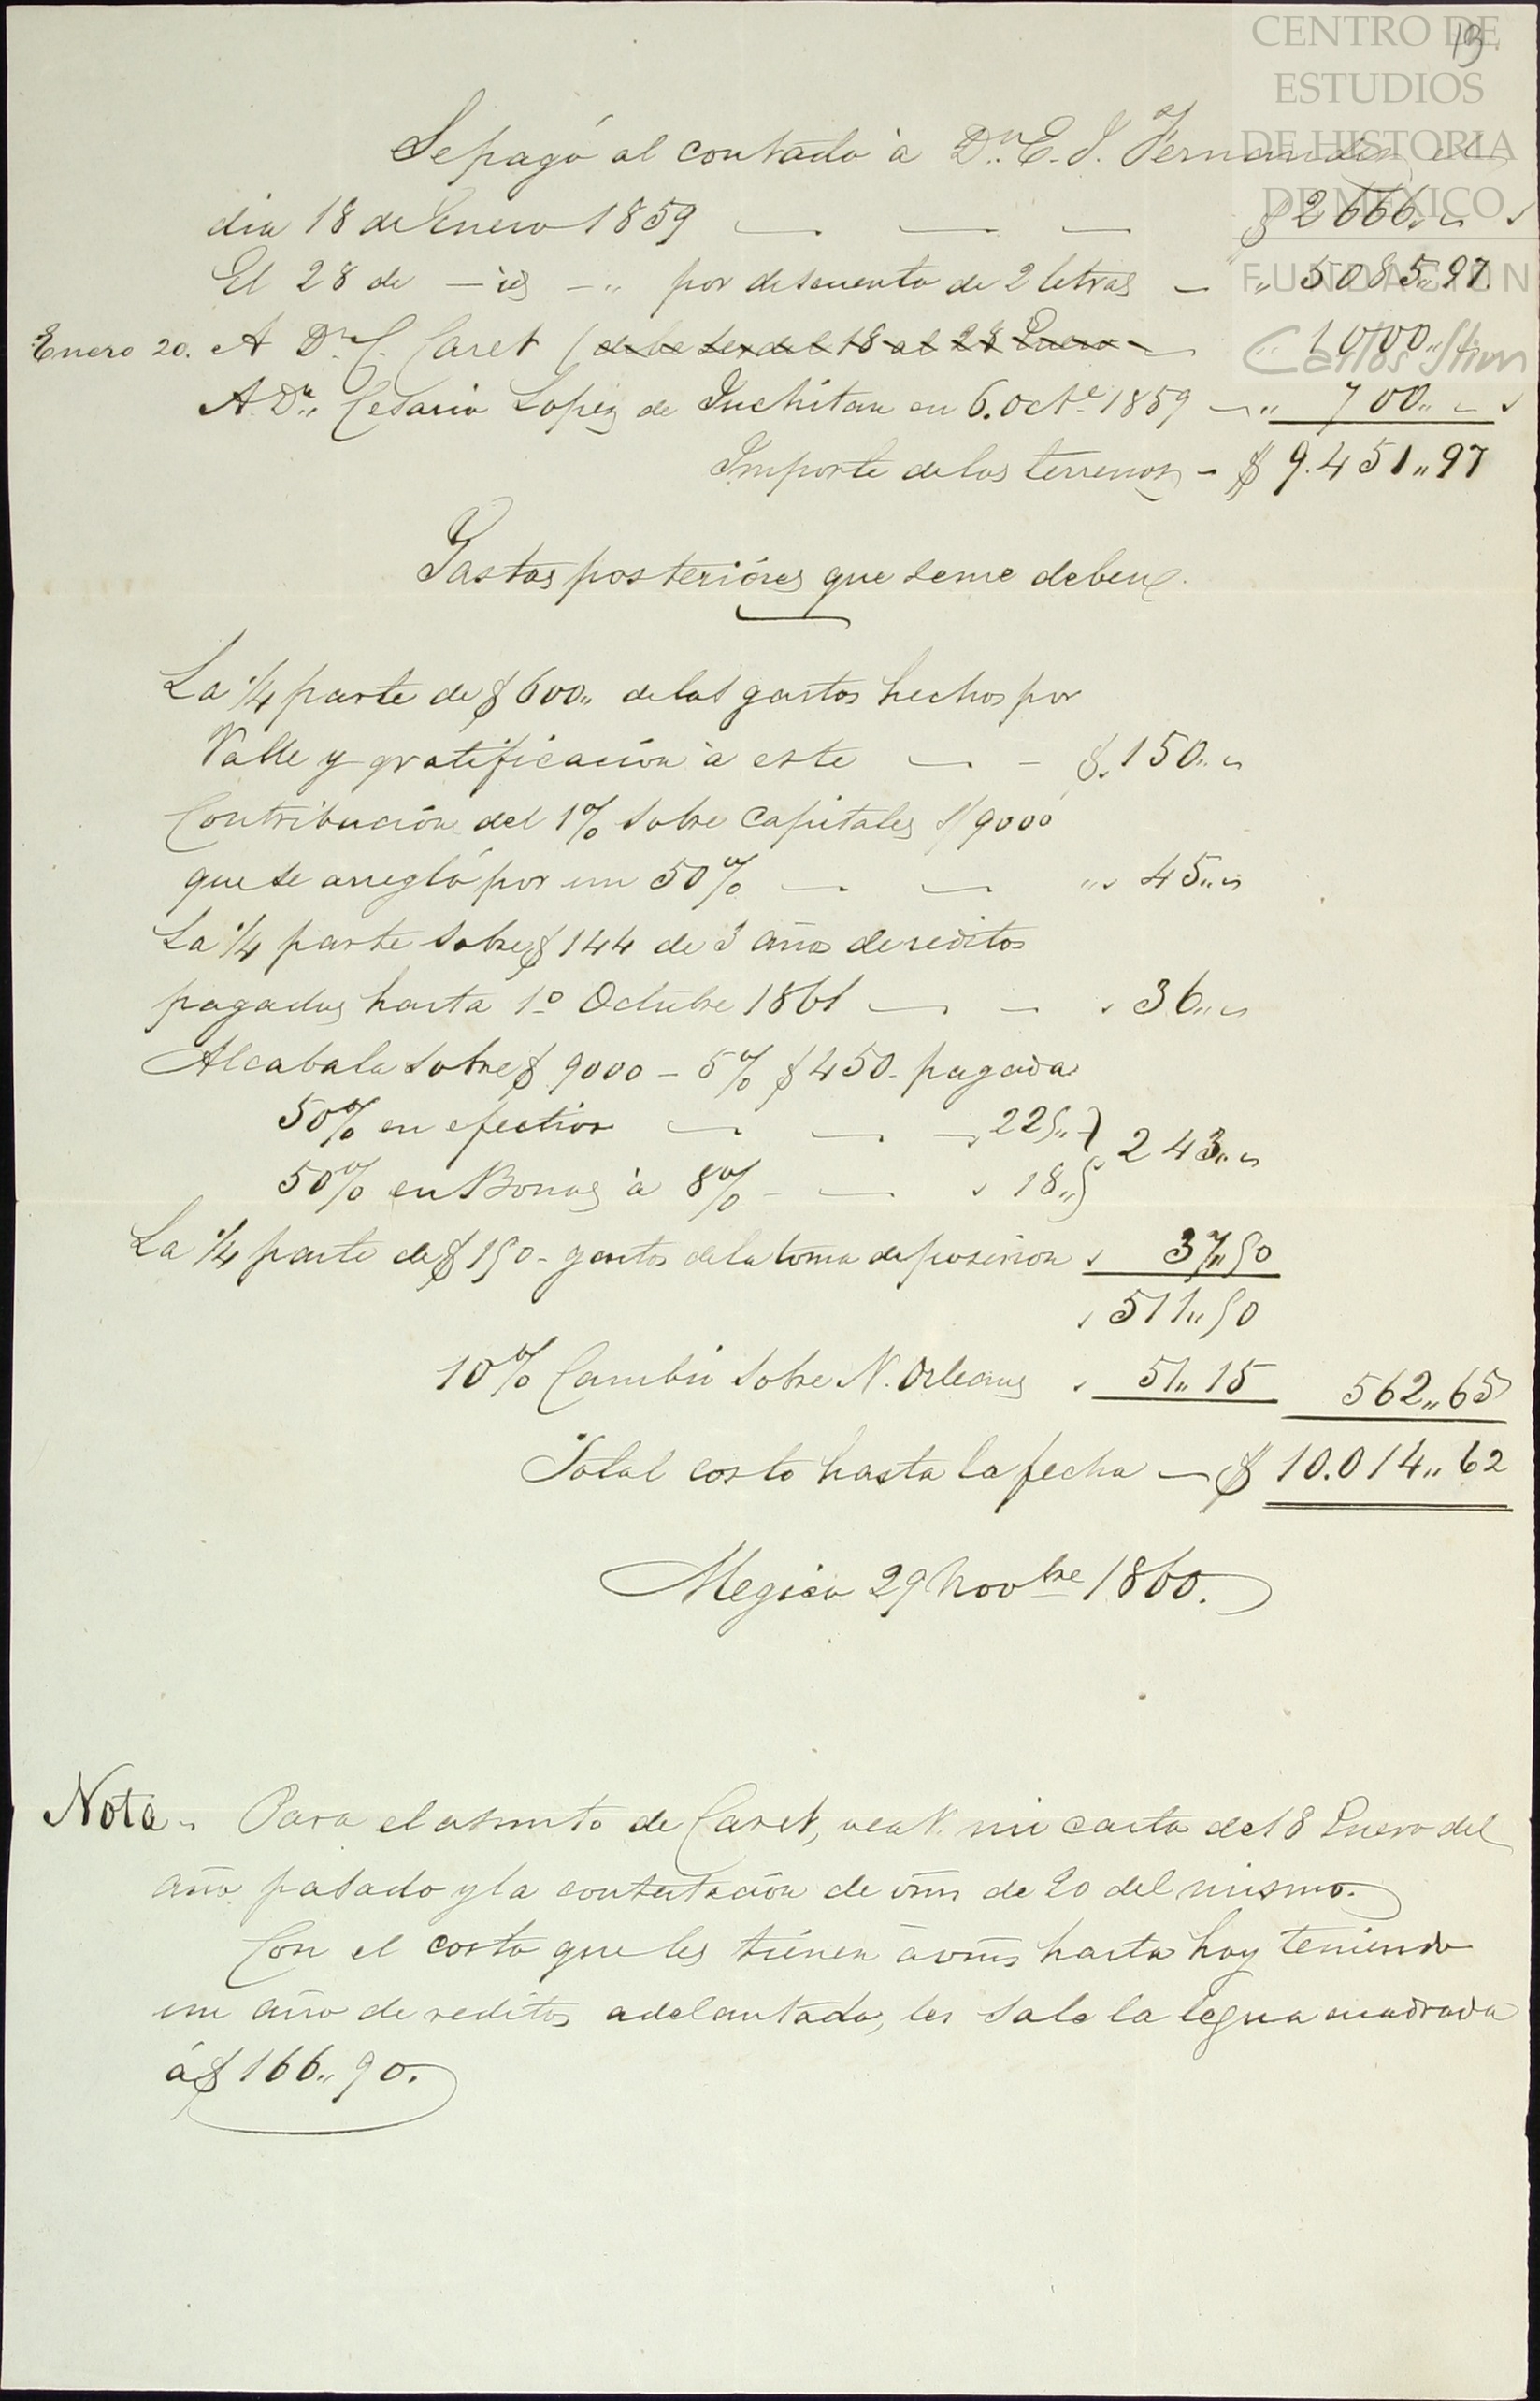 CENTRO DE
ESTUDIOS
DE HISTORIA
DE MÉXICO
FUNDACIÓN
Carlos Slim
13.
Se pagó al contado à Dn. E. J. Fernandez el
dia 18 de Enero 1859 — — — $ 2666.. "
El 28 de — id — " por descuento de 2 letras — " 5085.. 97.
Enero 20. A Dn. C. Caret (debe ser del 18 al 28 Enero — " 1000.. "
A Dn. Cesario Lopez de Juchitan en 6. Oct.e 1859 — " 700.. "
Importe de los terrenos — $ 9.451.. 97
Gastos posterióres que se me deben.
La 1/4 parte de $ 600.. de los gastos hechos por
Valle y gratificación à este — — $. 150.. "
Contribución del 1% sobre Capitales $ 9000
que se arregló por un 50% — — " 45.. "
La 1/4 parte sobre $ 144 de 3 años de reditos
pagados hasta 1º Octubre 1861 — — " 36.. "
Alcabala sobre $ 9000 — 5% $ 450 - pagada
50% en efectivo — — — 225.. } 243.. "
50% en Bonos à 8% - — " 18..
La 1/4 parte de $ 150 - gastos de la toma de posesion " 37.. 50
" 511.. 50
10% Cambio sobre N. Orleans " 51.. 15 562.. 65
Total costo hasta la fecha — $ 10.014.. 62
Megico 29 Novbre 1860.
Nota - Para el asunto de Caret, vea V. mi carta del 8 Enero del
año pasado y la contestación de vms de 20 del mismo.
Con el costo que les tienen à vms hasta hoy teniendo
un año de reditos adelantado, les sale la legua cuadrada
á $ 166.. 90.